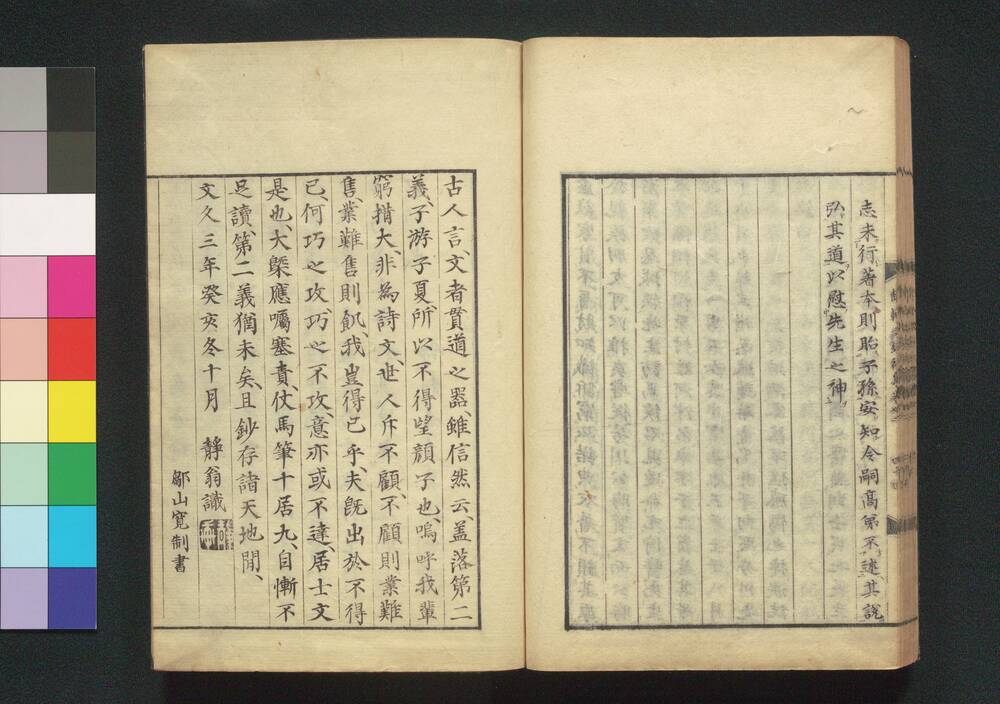 志未行著本則貽子孫安知令嗣高弟不述其説
弘其道以慰先生之神
古人言文者貫道之器雖信然云盖落第二
義子游子夏所以不得望顔子也嗚呼我輩
窮措大非為詩文世人斥不顧不顧則業難
售業難售則飢我豈得已乎夫既出於不得
已何巧之攻巧之不攻意亦或不達居士文
是也大槩應囑塞責仗馬筆十居九自慚不
足讀第二義猶未矣且鈔存諸天地間
文久三年癸亥冬十月　靜翁識
鄒山寛制書